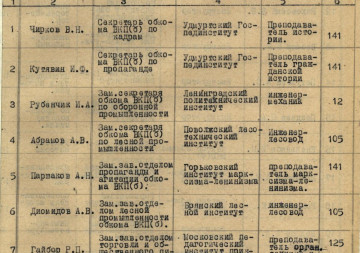 1 2 3 4 5 6
1 Чирков В.Н. Секретарь обко-
ма ВКП(б) по
кадрам Удмуртский Гос-
пединститут Преподава-
тель исто-
рии. 141
2 Кутявин И.Ф. Секретарь обко-
ма ВКП(б) по
пропаганде Удмуртский Гос-
пединститут Преподава-
тель граж-
данской
истории 141
3 Рубенчик И.А. Зам.секретаря
обкома ВКП(б)
по оборонной
промышленности Ленинградский
политехнический
институт инженер-
механик 12
4 Абрамов А.В. Зам.секретаря
обкома ВКП(б)
по лесной про-
мышленности Поволжский лесо-
технический
институт Инженер-
лесовод 105
5 А.Н. Зам.зав.отделом
пропаганды и
агитации обко-
ма ВКП(б). Горьковский
институт марк-
сизма-ленинизма препода­ва-
тель марк-
сизма-ле-
нинизма. 141
6 Диомидов А.В. Зам.зав.отде-
лом лесной
промышленности
обкома ВКП(б) лес-
ной институт инженер-
лесовод 105
7 Гайбов Р.П. Зам.зав.отделом
торговли и об-
Московский пе-
дагогический
институт преподава-
тель орган. 125